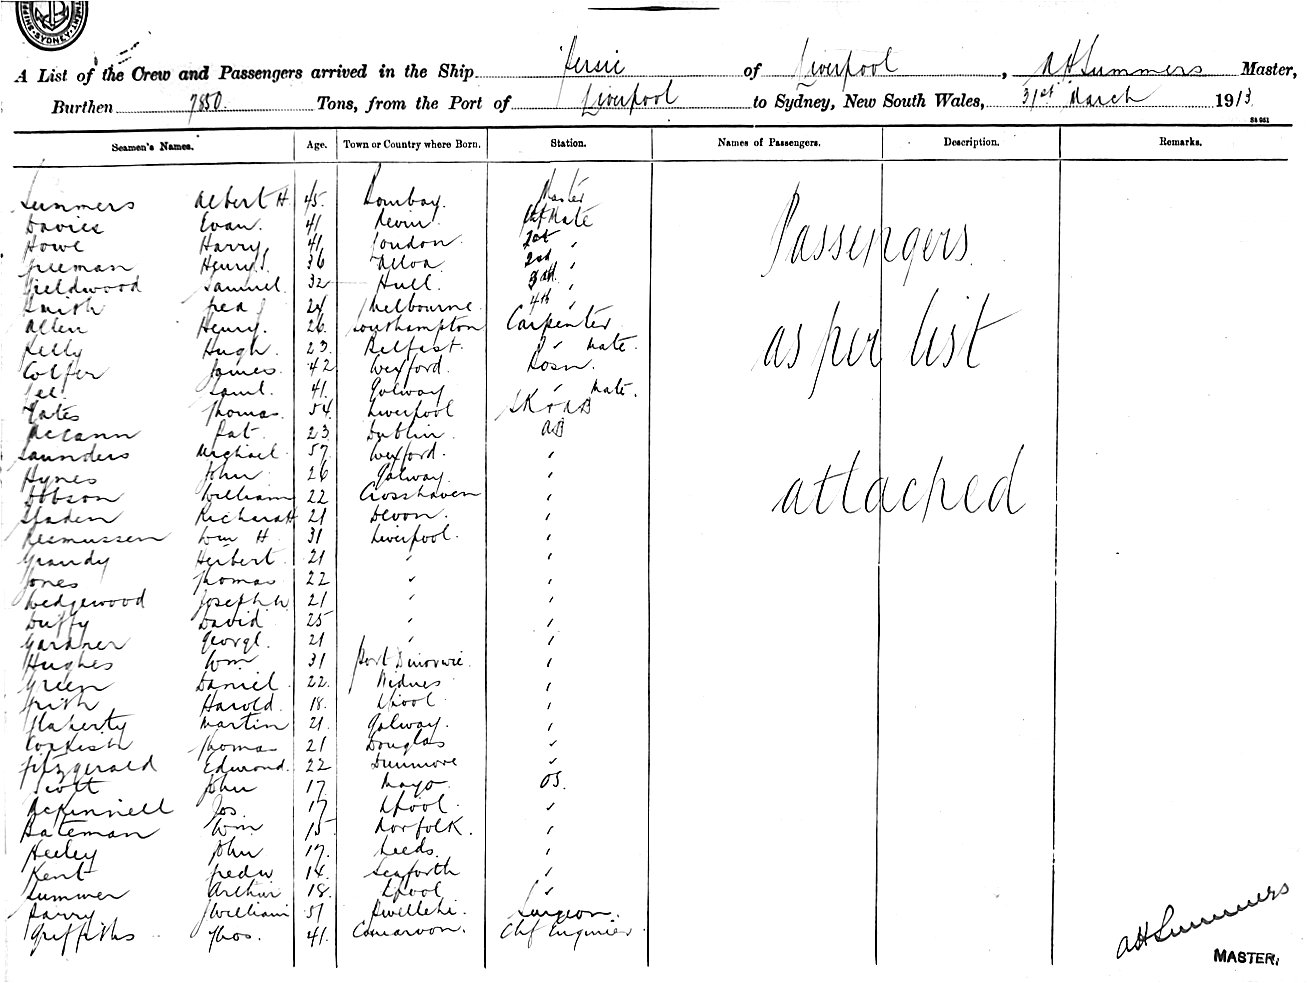 SYDNEY
A List of the Crew and Passengers arrived in the Ship Persic of Liverpool, AH Summers Master,
Burthen 7850 Tons, from the Port of Liverpool to Sydney, New South Wales, 31st March 1913
St 651
Seamen's Names. Age. Town or Country where Born. Station. Names of Passengers. Description. Remarks.
Summers Albert H 45 Bombay. Master
Davies Evan. 41 Chf Mate
Howe Harry 41 London. 1st "
Freeman Henry J. 36 Alloa 2nd "
Fieldwood Samuel 32 Hull. 3rd "
Smith Fred J 24 Melbourne 4th "
Allen Henry. 26 Southampton Carpenter
Kelly Hugh. 23 Belfast. " Mate.
Colfer James. 42 Wexford. Bosn.
Lee Saml. 41 Galway " Mate.
Yates Thomas. 54 Liverpool AB
McCann Pat. 23 Dublin. AB
Saunders Michael 57 Wexford. "
Hynes John 26 Galway. "
Hobson William 22 Crosshaven "
Sladen Richard H 21 Devon. "
Rasmussen Wm H 31 Liverpool. "
Grandy Herbert 21 " "
Jones Thomas 22 " "
Wedgewood Joseph W 21 " "
Duffy David 25 " "
Gardner George. 21 " "
Hughes Wm 31 Port Dinorwic. "
Green Daniel 22 Widnes "
Frith Harold 18 Lpool "
Flaherty Martin 21 Galway. "
Corkish Thomas 21 Douglas "
Fitzgerald Edmond 22 Dunmore "
Scott John 17 Mayo OS.
McKinnell Jos. 17 Lpool "
Bateman Wm 15 Norfolk. "
Heeley John 17 Leeds. "
Kent Fredw 14 Seaforth "
Summer Arthur 18 Lpool "
Parry William 51 Pwllheli. Surgeon.
Griffiths Thos. 41 Carnarvon. Chf Engineer.
Passengers
as per list
attached
AH Summers
MASTER,